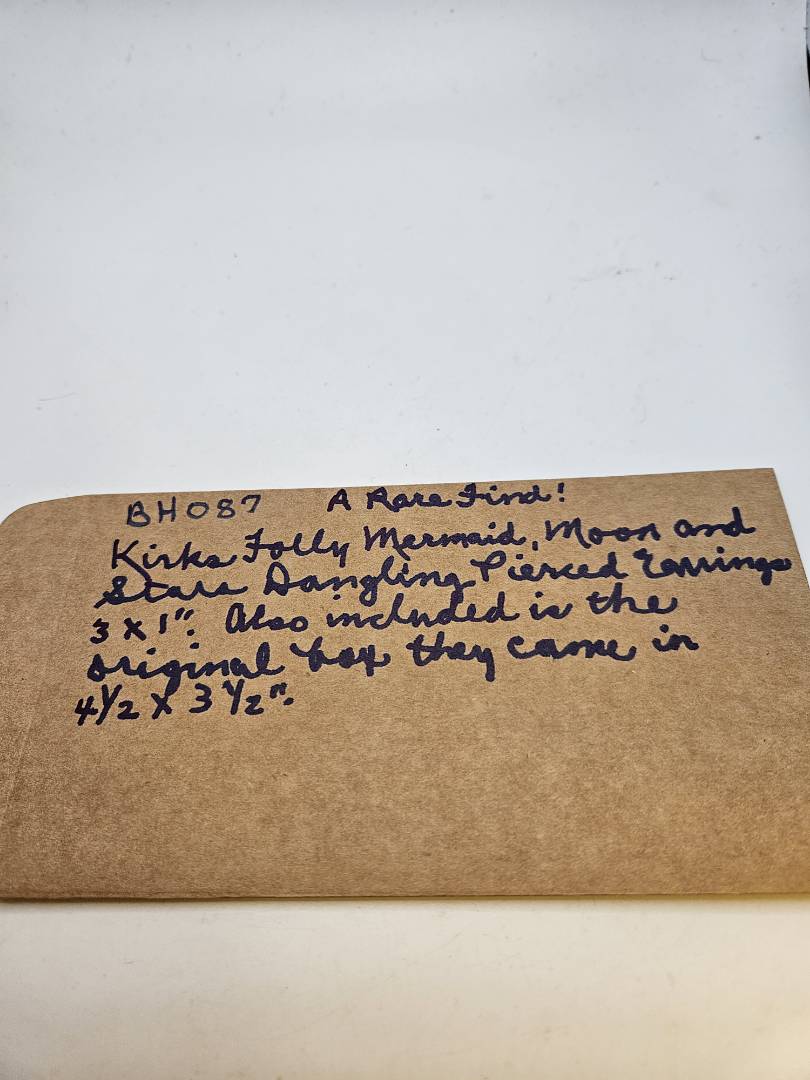 BH087 A Rare Find!
Kirks Folly Mermaid, Moon and
Stars Dangling Pierced Earrings
3 x 1". Also included is the
original box they came in
4 1/2 x 3 1/2".